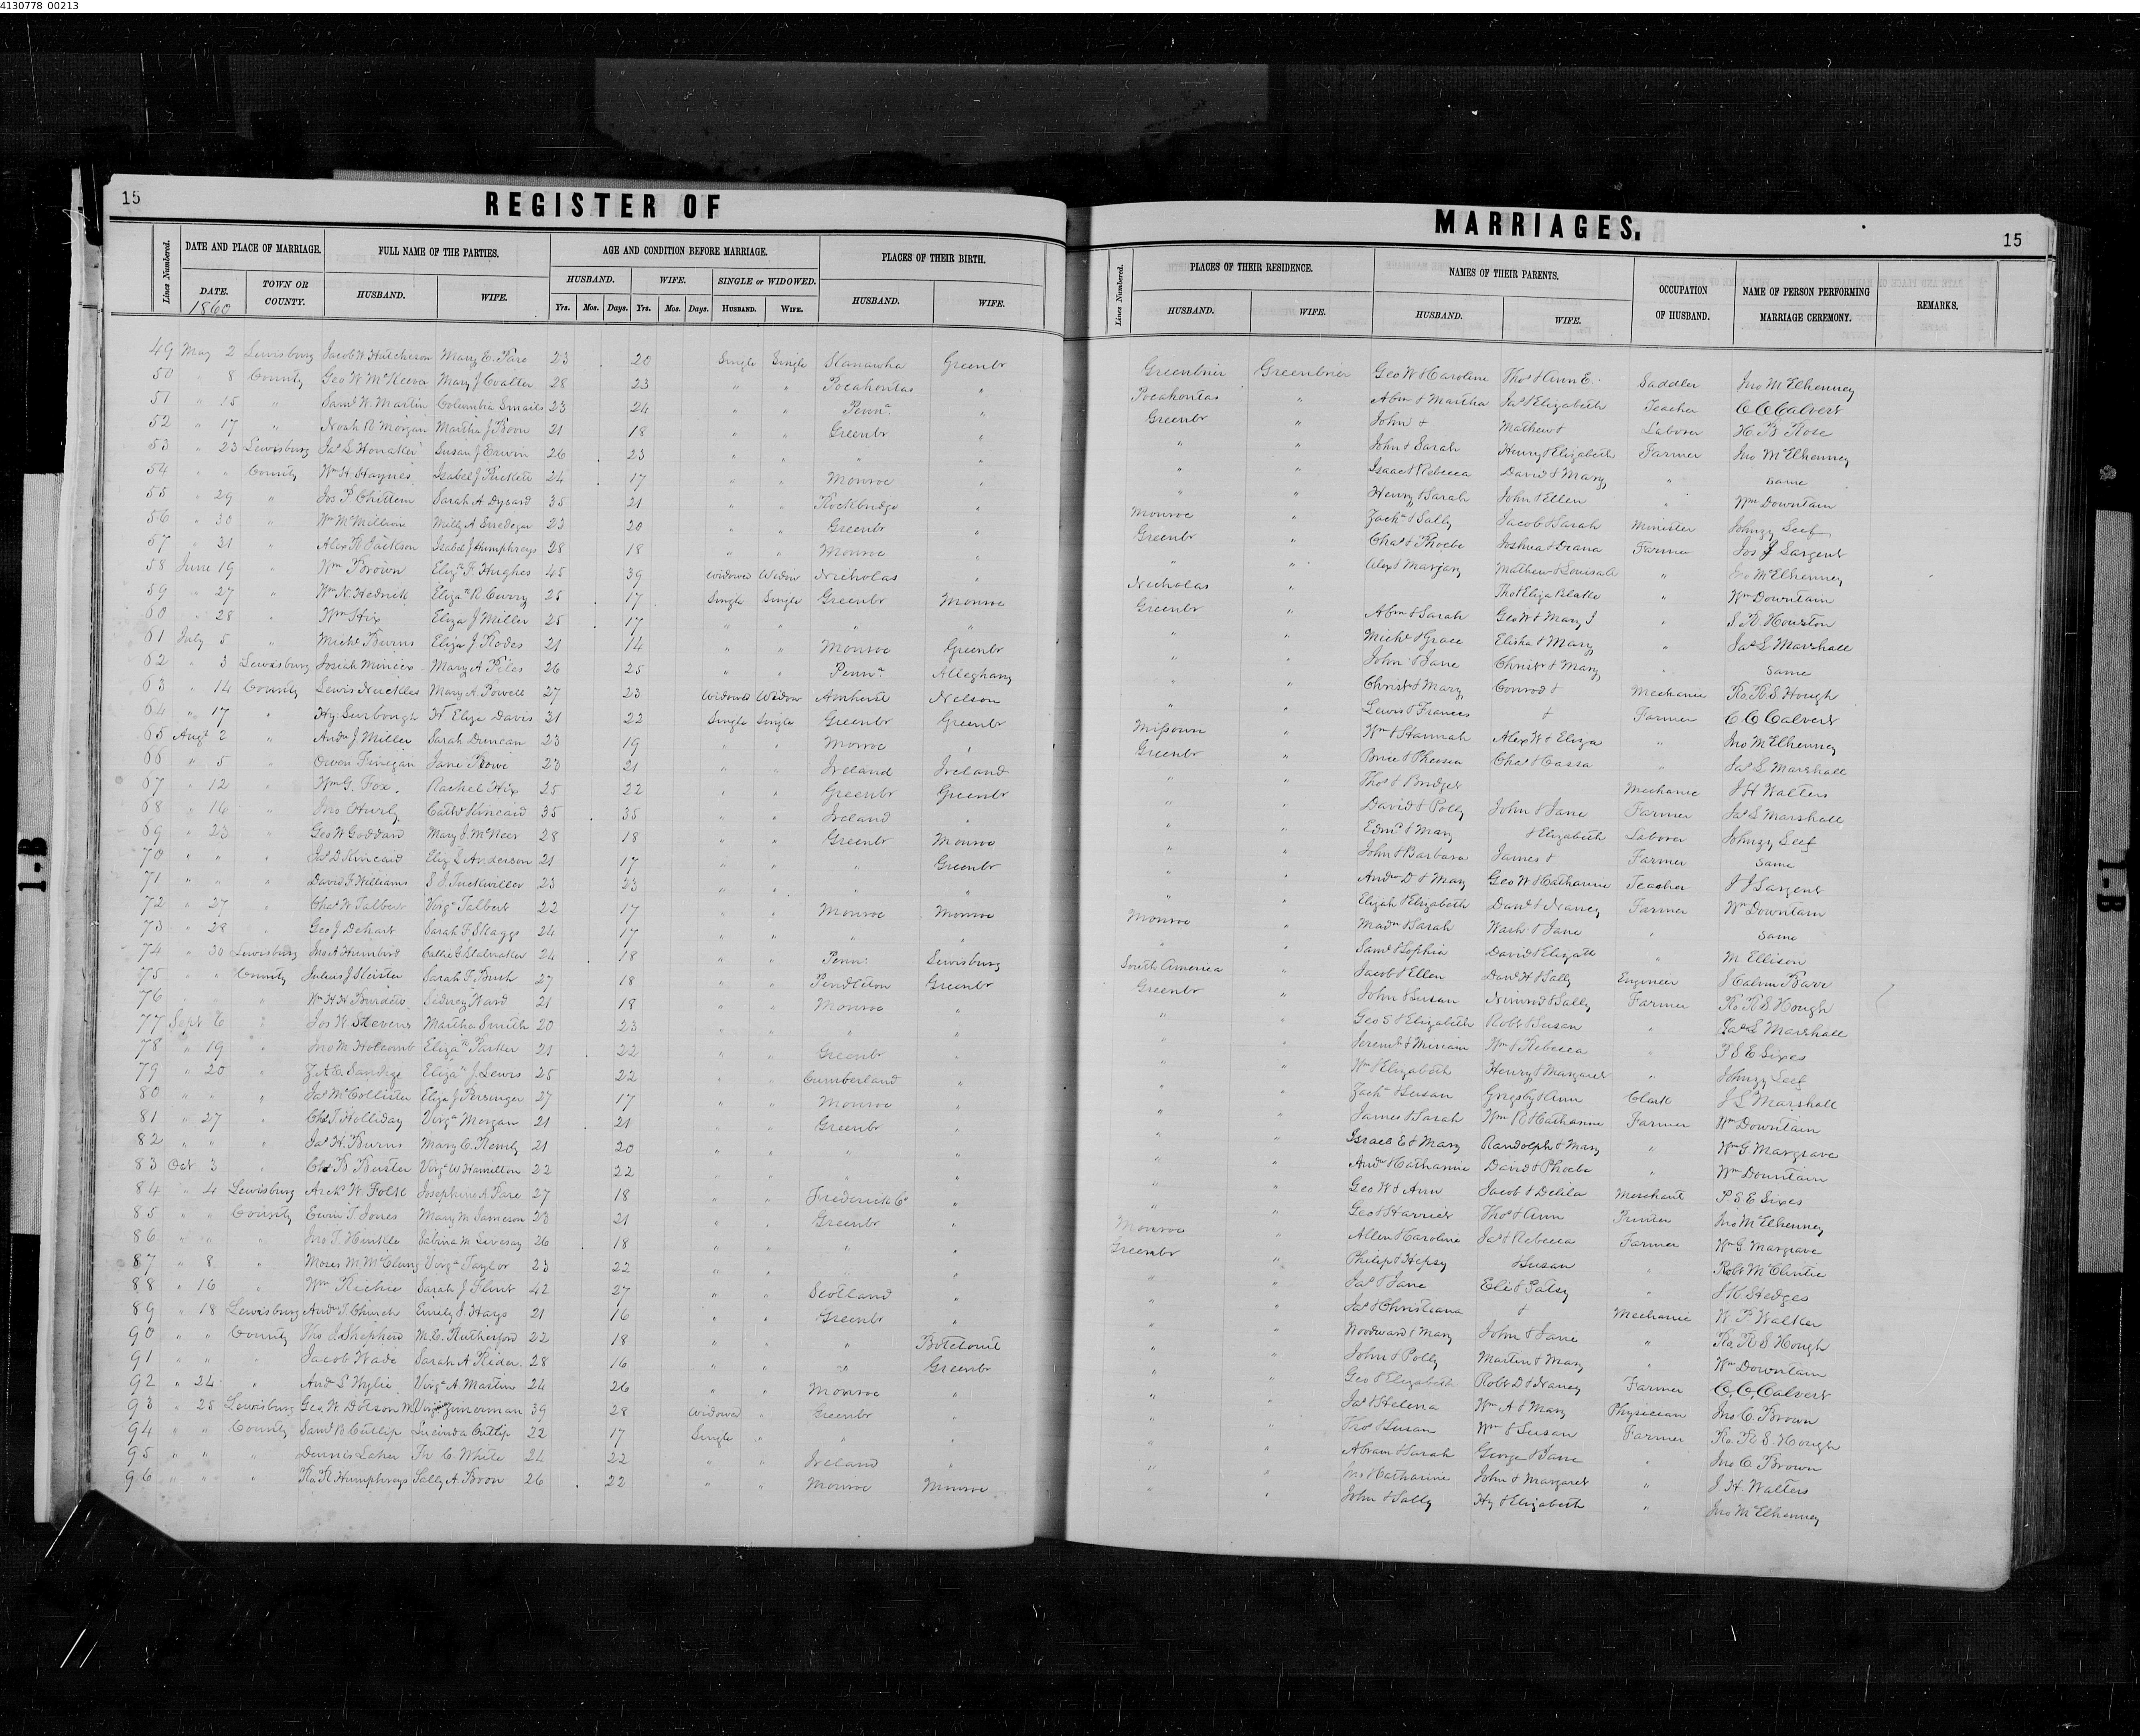 4130778_00213
15
REGISTER OF
Lines Numbered.
DATE AND PLACE OF MARRIAGE.
FULL NAME OF THE PARTIES.
AGE AND CONDITION BEFORE MARRIAGE.
PLACES OF THEIR BIRTH.
DATE.
1860
TOWN OR COUNTY.
HUSBAND.
WIFE.
HUSBAND.
WIFE.
SINGLE or WIDOWED.
HUSBAND.
WIFE.
Yrs. Mos. Days. Yrs. Mos. Days. HUSBAND. WIFE.
49 May 2 Lewisburg Jacob W Hutcheson Mary E. 23 20 Single Single Kanawha Greenbr
50 " 8 County Geo W McKeever Mary J Coalter 28 23 " " Pocahontas "
51 " 15 " Saml W. Martin Columbia Smails 23 24 " " Penna "
52 " 17 " Noah R Morgan Martha J Boon 21 18 " " Greenbr "
53 " 23 Lewisburg Jas S Honaker Susan J Erwin 26 23 " " " "
54 " " County Wm H Haynes Isabel J Rickett 24 17 " " Monroe "
55 " 29 " Jos P. Chittem Sarah A Dysard 35 21 " " Rockbridge "
56 " 30 " Wm McMillion Milly A Snedegar 23 20 " " Greenbr "
57 " 31 " Alex R Jackson Isabel J Humphreys 28 18 " " Monroe "
58 June 19 " Wm Brown Eliza F Hughes 45 39 Widowed Widow Nicholas "
59 " 27 " Wm N. Hedrick Eliza R Curry 25 17 Single Single Greenbr Monroe
60 " 28 " Wm Hix Eliza J Miller 25 17 " " " "
61 July 5 " Michl Burns Eliza J. Rodes 21 14 " " Monroe Greenbr
62 " 3 Lewisburg Josiah Mary A 26 25 " " Penna Alleghany
63 " 14 County Lewis Nuckles Mary A. Powell 27 23 Widowed Widow Amherst Nelson
64 " 17 " Hy Surbough H Eliza Davis 31 22 Single Single Greenbr Greenbr
65 Augt 2 " Andw J Miller Sarah Duncan 23 19 " " Monroe "
66 " 5 " Owen Finegan Jane Rowe 23 21 " " Ireland Ireland
67 " 12 " Wm G. Fox Rachel Hix 25 22 " " Greenbr Greenbr
68 " 16 " Jno Hurly Cath Kincaid 35 35 " " Ireland "
69 " 23 " Geo W Goddard Mary J. McNeer 28 18 " " Greenbr Monroe
70 " " " Jas D Kincaid Eliz S Anderson 21 17 " " " Greenbr
71 " " " David F Williams S J. Tuckwiller 23 23 " " " "
72 " 27 " Chas W Talbert Virga Talbert 22 17 " " Monroe Monroe
73 " 28 " Geo J. Dehart Sarah F. Skaggs 24 17 " " " "
74 " 30 Lewisburg Jno A Humbird Callie G Stalnaker 24 18 " " Penn Lewisburg
75 " " County Julius J Sarah F. Bush 27 18 " " Pendleton Greenbr
76 " " " Wm H H Burdett Sidney Ward 21 18 " " Monroe "
77 Sept 6 " Jos W Stevens Martha Smith 20 23 " " " "
78 " 19 " Jno M Holcomb Eliza Parker 21 22 " " Greenbr "
79 " 20 " Z A C. Sandige Eliza J. Lewis 25 22 " " Cumberland "
80 " " " Jas McCollister Eliza J Persinger 27 17 " " Monroe "
81 " 27 " Chs T. Holliday Virga Morgan 21 21 " " Greenbr "
82 " " " Jas H. Burns Mary C. Remly 21 20 " " " "
83 Oct 3 " Chs B Buster Virga W Hamilton 22 22 " " " "
84 " 4 Lewisburg Archd W. Folk Josephine A 27 18 " " Frederick Co "
85 " " County Edwin T. Jones Mary M. Jameson 23 21 " " Greenbr "
86 " " " Jno T. Hinkle Sabina M. Livesay 26 18 " " " "
87 " 8 " Moses M McClung Virga Taylor 23 22 " " " "
88 " 16 " Wm Richie Sarah J Flint 42 27 " " Scotland "
89 " 18 Lewisburg Andw T. Church Emily J Hays 21 16 " " Greenbr "
90 " " County Tho J. Shepherd M. C. Rutherford 22 18 " " " Botetourt
91 " " " Jacob Wade Sarah A Rider 28 16 " " " Greenbr
92 " 24 " Andw S Wylie Virga A. Martin 24 26 " " Monroe "
93 " 25 Lewisburg Geo. W Dotson M Virginia Zimerman 39 28 Widowed " Greenbr "
94 " " County Saml B Cutlip Lucinda Cutlip 22 17 Single " " "
95 " " " Dennis Laher C. White 24 22 " " Ireland "
96 " " " Ro. R Humphreys Sally A. Boon 26 22 " " Monroe Monroe
MARRIAGES.
15
Lines Numbered.
PLACES OF THEIR RESIDENCE.
NAMES OF THEIR PARENTS.
OCCUPATION OF HUSBAND.
NAME OF PERSON PERFORMING MARRIAGE CEREMONY.
REMARKS.
HUSBAND.
WIFE.
HUSBAND.
WIFE.
Greenbrier Greenbrier Geo W & Caroline Thos & Ann E. Saddler Jno McElhenney
Pocahontas " Abm & Martha Jas & Elizabeth Teacher C C Calvert
Greenbr " John & Mathew & Laborer H. B Rose
" " John & Sarah Henry & Elizabeth Farmer Jno McElhenney
" " Isaac & Rebecca David & Mary " same
" " Henry & Sarah John & Ellen " Wm Downtain
Monroe " Zacha & Sally Jacob & Sarah Minister Johnzy Leef
Greenbr " Chas & Phoebe Joshua & Deana Farmer Jos J Sargent
" " Alex & Marjary Mathew & Louisa A " Jno McElhenney
Nicholas " Tho & Eliza Blake " Wm Downtain
Greenbr " Abm & Sarah Geo W & Mary J " S. R. Houston
" " Michl & Grace Elisha & Mary " Jas L Marshall
" " John & Jane Christr & Mary " Same
" " Christr & Mary Conrod & Mechanic Ro. R. S. Hough
" " Lewis & Frances & Farmer C. C Calvert
Missouri " Wm & Hannah Alex W & Eliza " Jno McElhenney
Greenbr " Brice & Chas & Cassa " Jas L Marshall
" " Thos & Bridget Mechanic J H Walters
" " David & Polly John & Jane Farmer Jas L Marshall
" " Edmd & Mary & Elizabeth Laborer Johnzy Leef
" " John & Barbara James & Farmer Same
" " Andw D & Mary Geo W & Catharine Teacher J J Sargent
" " Elijah & Elizabeth Danl & Nancy Farmer Wm Downtain
Monroe " Madn & Sarah Wash & Jane " Same
" " Saml & Sophia David & Elizabeth " M Ellison
South America " Jacob & Ellen Danl H & Sally Engineer J Calvin Barr
Greenbr " John & Susan Nimrod & Sally Farmer Ro R S Hough
" " Geo S & Elizabeth Robt & Susan " Jas L Marshall
" " Jeremh & Miriam Wm & Rebecca " P. S E Sixes
" " Wm & Elizabeth Henry & Margaret " Johnzy Leef
" " Zacha & Susan Grigsby & Ann Clerk J L Marshall
" " James & Sarah Wm R & Catharine Farmer Wm Downtain
" " Israel E & Mary Randolph & Mary " Wm G. Margrave
" " Andw & Catharine David & Phoebe " Wm Downtain
" " Geo W & Ann Jacob & Delila Merchant P. S E Sixes
" " Geo & Harriet Thos & Ann Jno McElhenney
Monroe " Allen & Caroline Jas & Rebecca Farmer Wm G. Margrave
Greenbr " Philip & Hepsy & Susan " Robt McClintic
" " Jas & Jane Eli & Patsy " Hedges
" " Jas & Christiana & Mechanic W. P Walker
" " Woodward & Mary John & Jane " Ro. R S Hough
" " John & Polly Martin & Mary " Wm Downtain
" " Geo & Elizabeth Robt D & Nancy Farmer C. C. Calvert
" " Jas & Helena Wm A & Mary Physician Jno C. Brown
" " Thos & Susan Wm & Susan Farmer Ro. R. S. Hough
" " Abram & Sarah George & Jane " Jno C. Brown
" " Jno & Catharine John & Margaret " J. H. Walters
" " John & Sally Hy & Elizabeth " Jno McElhenney
1-B
1-B